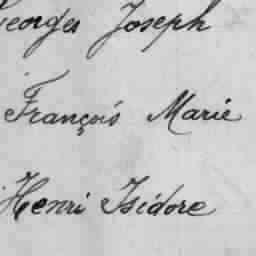 Georges Joseph
François Marie
Henri Isidore